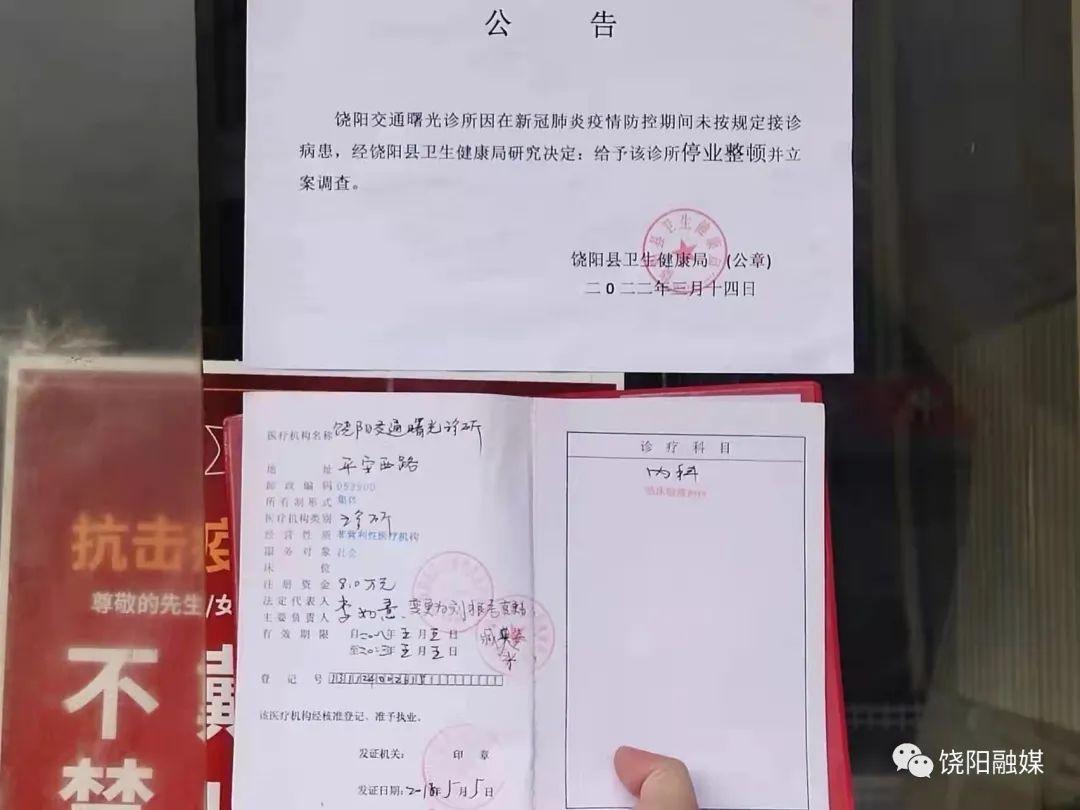 公 告
饶阳交通曙光诊所因在新冠肺炎疫情防控期间未按规定接诊
病患，经饶阳县卫生健康局研究决定：给予该诊所停业整顿并立
案调查。
饶阳县卫生健康局 (公章)
二0二二年三月十四日
医疗机构名称 饶阳交通曙光诊所
地 址 平安西路
邮政编码 053900
所有制形式 集体
医疗机构类别 诊所
经营性质 非营利性医疗机构
服务对象 社会
床 位
注册资金 8.0万元
法定代表人 李如意
主要负责人
有效期限 自二〇一八年五月五日
至2023年五月五日
登 记 号
该医疗机构经核准登记，准予执业。
发证机关： 印 章
发证日期：2018年5月5日
诊 疗 科 目
内科
抗击疫
尊敬的先生/女
不 戴
禁
饶阳融媒